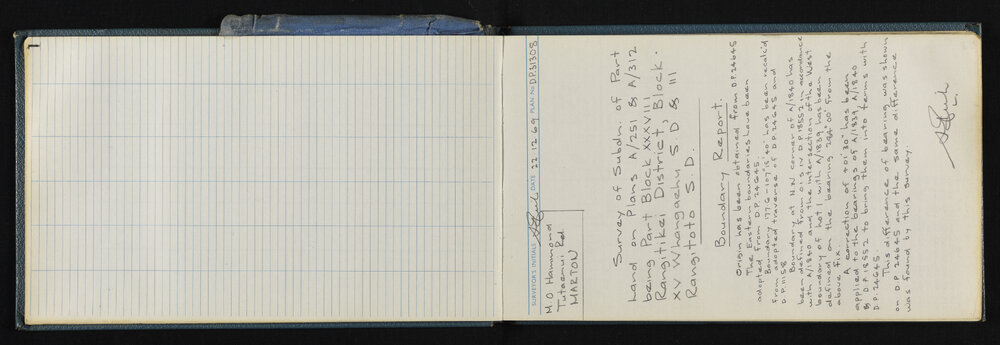 1
SURVEYOR'S INITIALS DATE 22.12.69 PLAN NO. D.P.31308
M.O Hammond
Tutaenui Rd
MARTON
Survey of Subdn. of Part
Land on Plans A/251 & A/312
being Part Block XXXVIII
Rangitikei District, Block
XV Whangaehu S D & III
Rangitoto S.D.
Boundary Report.
Origin has been obtained from D.P.24645
The Eastern boundaries have been
adopted from D.P.24645.
Boundary 177.6 - 107°15'40" has been recalc'd
from adopted traverse of D.P.24645 and
D.P.11158
Boundary at N.W corner of A/1840 has
been defined from O.I.S IV D.P.18552 in accordance
with A/1840 and the intersection of the West
boundary of Lot 1 with A/1839 has been
defined on the bearing 284°00' from the
above fix.
A correction of +01'30" has been
applied to the bearings of A/1839, A/1840
& D.P.18552 to bring them into terms with
D.P.24645.
This difference of bearing was shown
on D.P.24645 and the same difference
was found by this survey.